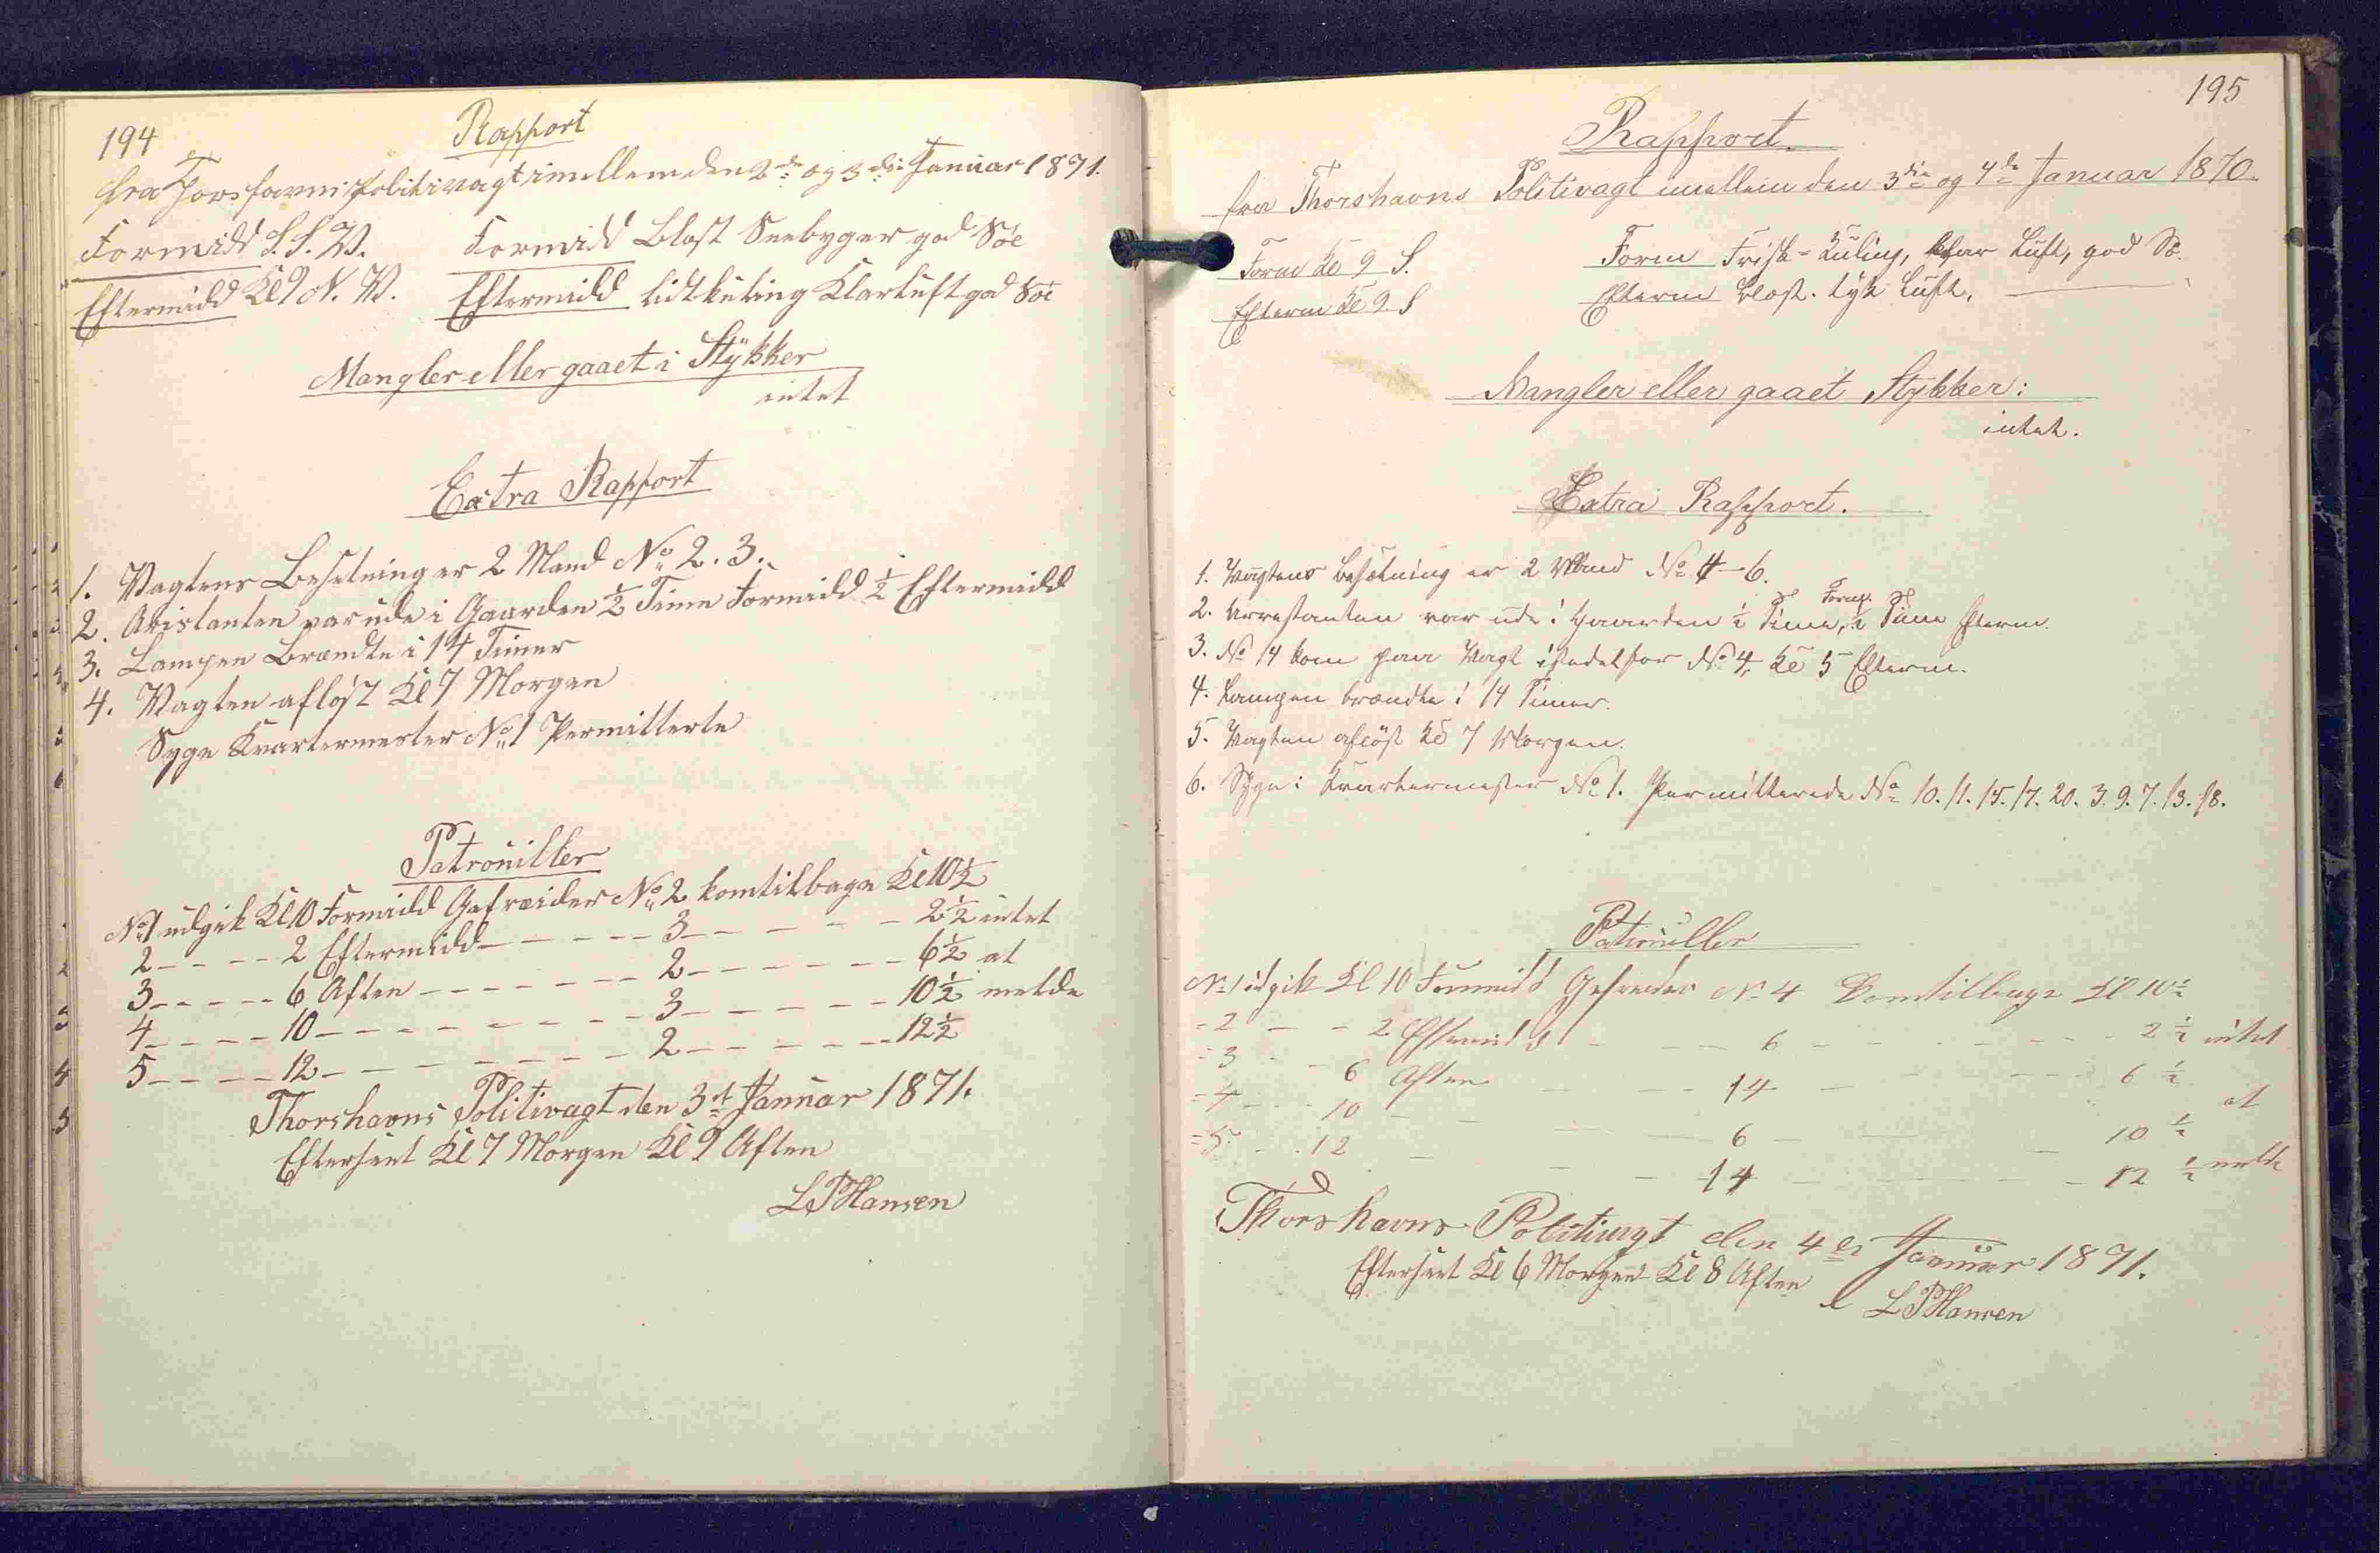 194
Rapport
fra Torshavns Politivagt imellem den 2de og 3die Januar 1871.
Formidd S. S. V. Formidd Blæst Sneebyger god Söe
Eftermidd Kl 9 N. V. Eftermidd lidt kuling Klar luft god Söe
Mangler eller gaaet i Stykker
intet
Extra Rapport
1. Vagtens Besetning er 2 Mand No 2. 3.
2. Aristanten var ude i Gaarden ½ Time Formidd ½ Eftermidd
3. Lampen Brændte i 14 Timer
4. Vagten aflöst Kl 7 Morgen
Syge Kvartermester No 1 Permitterte
Patrouiller
No 1 udgik Kl 10 Formidd Gefreider No 2 kom tilbage Kl 10½
2 - - - - 2 Eftermidd - - - - - 3 - - - - 2½ intet
3 - - - - 6 Aften - - - - - - 2 - - - - - - 6½ at
4 - - - - 10 - - - - - - - - 3 - - - - - 10½ melde
5 - - - - 12 - - - - - - - 2 - - - - - - 12½
Thorshavns Politivagt den 3de Januar 1871.
Efterseet Kl 7 Morgen Kl 9 Aften
L P Hansen
195
Rapport.
fra Thorshavns Politivagt imellem den 3die og 4de Januar 1870.
Form Kl 9 S. Form Frisk-Kuling, klar Luft, god Sö.
Efterm Kl 9. S Efterm Blæst. tyk Luft,
Mangler eller gaaet Stykker:
intet.
Extra Rapport.
1. Vagtens Besætning er 2 Mand No 4-6.
2. Arrestanten var ude i Gaarden ½ Time Form, ½ Time Efterm.
3. No 14 kom paa Vagt istedetfor No 4, Kl 5 Efterm.
4. Lampen brændte i 14 Timer.
5. Vagten aflöst Kl 7 Morgen.
6. Syge: Kvartermester No 1. Permitterede No 10. 11. 15. 17. 20. 3. 9. 7. 13. 18.
Patrouiller
No 1 udgik Kl 10 Formidd Gefreider No 4 Kom tilbage Kl 10½
= 2 - - 2 Eftermidd - - - 6 - - - - 2½ intet
= 3 - - 6 Aften - - 14 - - - - 6½
= 4 - - 10 - - - 6 - - - 10½ at
= 5 - - 12 - - - 14 - - - - 12½ melde
Thorshavns Politivagt den 4de Januar 1871.
Efterseet Kl 6 Morgen Kl 8 Aften
L P Hansen